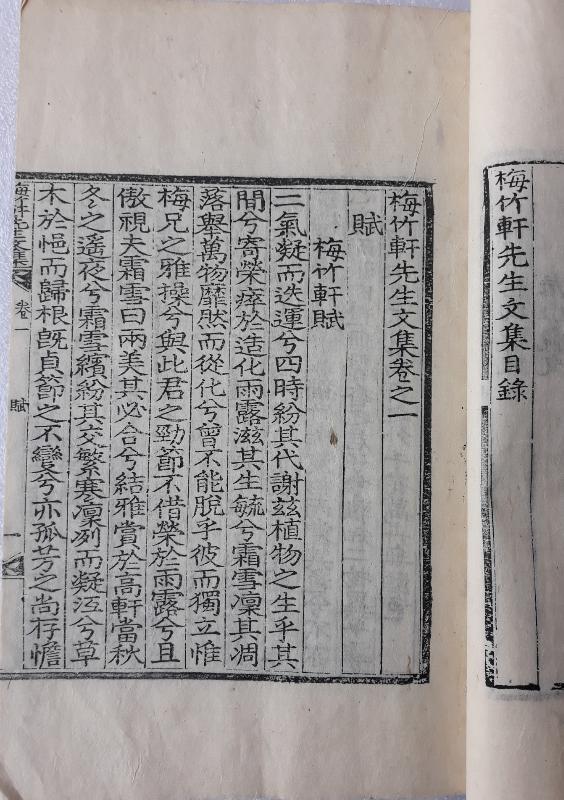 梅竹軒先生文集目錄
梅竹軒先生文集卷之一
賦
梅竹軒賦
二氣凝而迭運兮四時紛其代謝玆植物之生乎其
間兮寄榮瘁於造化雨露滋其生毓兮霜雪凜其凋
落擧萬物靡然而從化兮曾不能脫乎彼而獨立惟
梅兄之雅操兮與此君之勁節不借榮於雨露兮且
傲視夫霜雪曰兩美其必合兮結雅賞於高軒當秋
冬之遙夜兮霜雪繽紛其交繁寒凜冽而凝沍兮草
木於悒而歸根旣貞節之不變兮亦孤芳之尚存憺
梅竹軒先生文集
卷一
賦
一